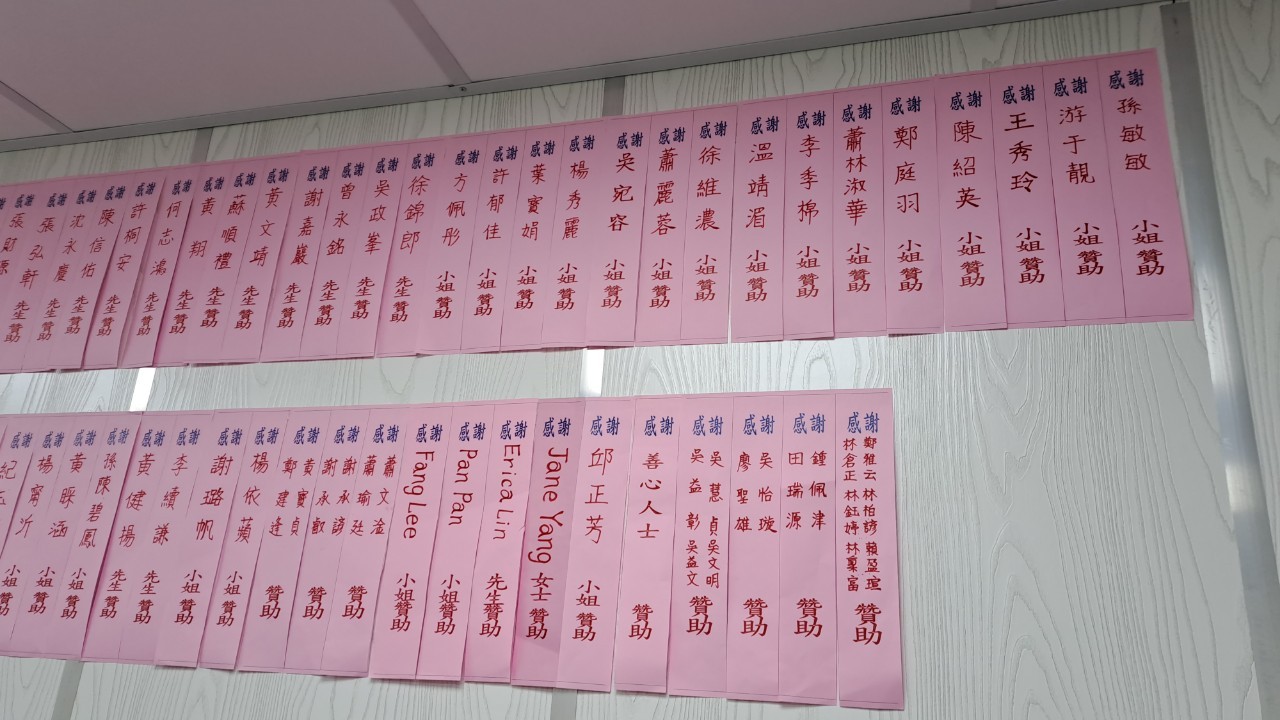 感謝 孫敏敏 小姐 贊助
感謝 游于靚 小姐 贊助
感謝 王秀玲 小姐 贊助
感謝 陳紹英 小姐 贊助
感謝 鄭庭羽 小姐 贊助
感謝 蕭林淑華 小姐 贊助
感謝 李季棉 小姐 贊助
感謝 溫靖湄 小姐 贊助
感謝 徐維濃 小姐 贊助
感謝 蕭麗蓉 小姐 贊助
感謝 吳宛容 小姐 贊助
感謝 楊秀麗 小姐 贊助
感謝 葉寶娟 小姐 贊助
感謝 許郁佳 小姐 贊助
感謝 方佩彤 小姐 贊助
感謝 徐錦郎 先生 贊助
感謝 吳政峯 先生 贊助
感謝 曾永銘 先生 贊助
感謝 謝嘉巖 先生 贊助
感謝 黃文靖 先生 贊助
感謝 蘇順禮 先生 贊助
感謝 黃翔 先生 贊助
感謝 何志鴻 先生 贊助
感謝 許桐安 先生 贊助
感謝 陳信佑 先生 贊助
感謝 沈永慶 先生 贊助
感謝 張弘軒 先生 贊助
感謝 張財源 先生 贊助
感謝 鄭雅云 林柏諺 賴盈瑄
林倉正 林鈺婷 林稟富 贊助
感謝 鍾佩津
田瑞源 贊助
感謝 吳怡璇
廖聖雄 贊助
感謝 吳慧貞 吳文明
吳益彰 吳益文 贊助
感謝 善心人士 贊助
感謝 邱正芳 小姐 贊助
感謝 Jane Yang 女士 贊助
感謝 Erica Lin 先生 贊助
感謝 Pan Pan 小姐 贊助
感謝 Fang Lee 小姐 贊助
感謝 蕭文淦
蕭瑜廷 贊助
感謝 謝永諺
謝永叡 贊助
感謝 黃寶貞
鄭建逢 贊助
感謝 楊依蘋 小姐 贊助
感謝 謝璐帆 小姐 贊助
感謝 李續謙 先生 贊助
感謝 黃健揚 先生 贊助
感謝 孫陳碧鳳 小姐 贊助
感謝 黃睬涵 小姐 贊助
感謝 楊甯沂 小姐 贊助
感謝 紀玉 小姐 贊助